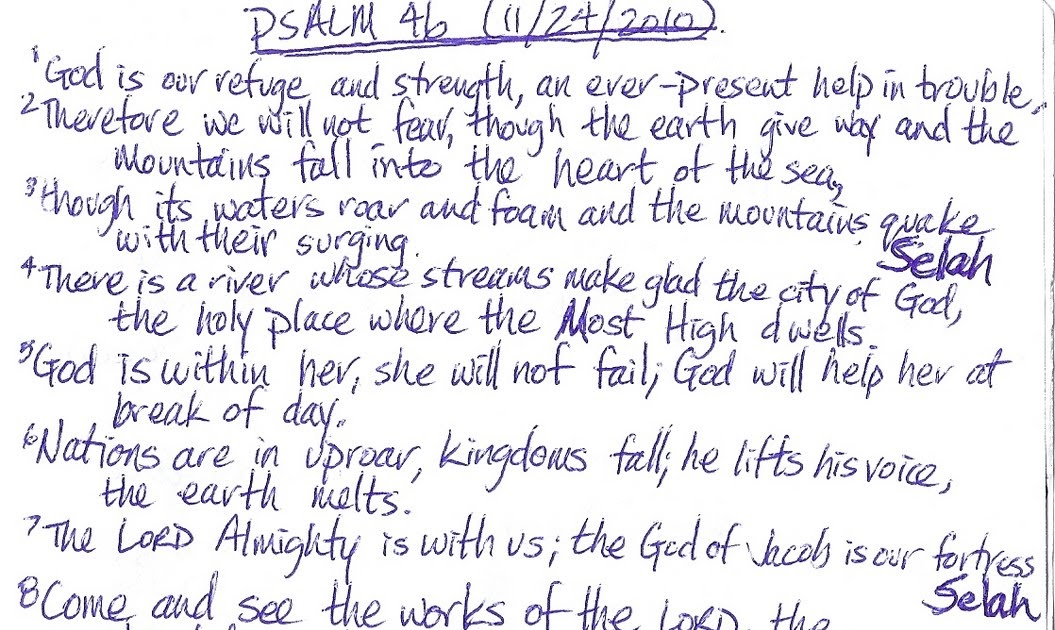 PSALM 46 (11/24/2010).
1God is our refuge and strength, an ever-present help in trouble,
2Therefore we will not fear, though the earth give way and the
mountains fall into the heart of the sea,
3though its waters roar and foam and the mountains quake
with their surging. Selah
4There is a river whose streams make glad the city of God,
the holy place where the Most High dwells.
5God is within her, she will not fail; God will help her at
break of day.
6Nations are in uproar, kingdoms fall; he lifts his voice,
the earth melts.
7The LORD Almighty is with us; the God of Jacob is our fortress
Selah
8Come and see the works of the LORD, the